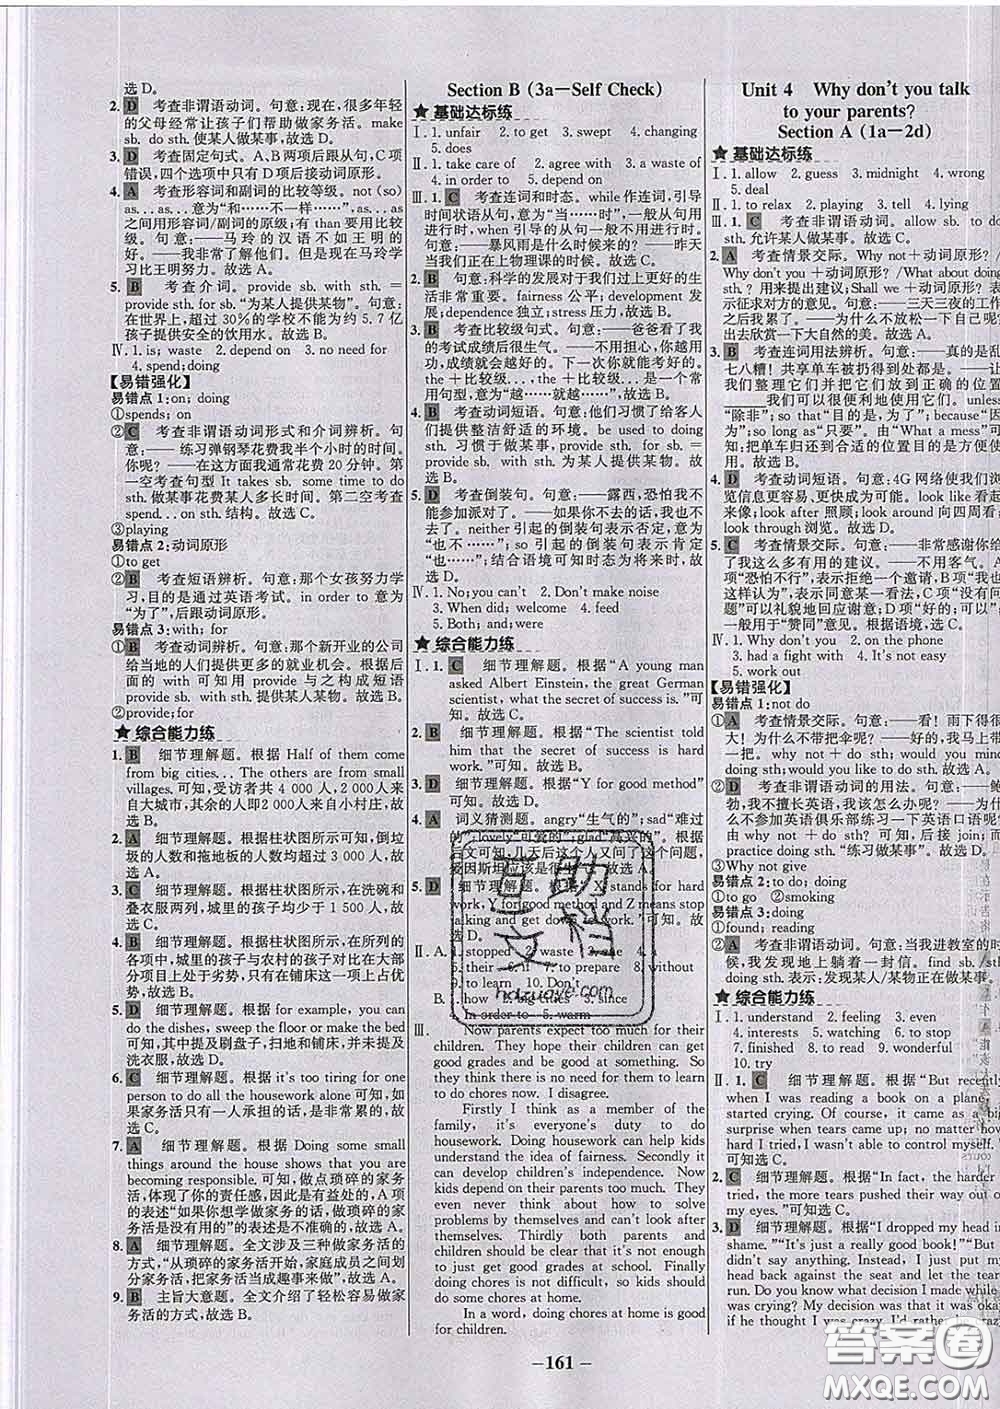 选 D。
2. D 考查非谓语动词。句意:现在,很多年轻
的父母经常让孩子们帮助做家务活。make
sb. do sth. 使某人做某事,故选 D。
3. D 考查固定句式。A、B 两项后跟从句,C 项
错误,四个选项中只有 D 项后接动词原形。
4. A 考查形容词和副词的比较等级。not (so)
as... as... 意为“和……不一样……”,as... as
之间用形容词/副词的原级;有 than 要用比较
级。句意:——马玲的汉语不如王明的
好。——我非常了解他们。但是现在马玲学
习比王明努力。故选 A。
5. B 考查介词。provide sb. with sth. =
provide sth. for sb. “为某人提供某物”。句意:
在世界上,超过 30%的学校不能为约 5.7 亿
孩子提供安全的饮用水。故选 B。
Ⅳ. 1. is; waste 2. depend on 3. no need for
4. spend; doing
【易错强化】
易错点 1:on; doing
①spends; on
②C 考查非谓语动词形式和介词辨析。句
意:—— 练习弹钢琴花费我半个小时的时间。
你呢? ——在这方面我通常花费 20 分钟。第
一空考查句型 It takes sb. some time to do
sth. 做某事花费某人多长时间。第二空考查
spend... on sth. 结构。故选 C。
③playing
易错点 2:动词原形
①to get
②B 考查短语辨析。句意:那个女孩努力学
习,目的是通过英语考试。in order to 意为
“为了”,后跟动词原形。
易错点 3:with; for
①B 考查动词辨析。句意:那个新开业的公司
给当地的人们提供更多的就业机会。根据后
面的 with 可知用 provide 与之构成短语
provide sb. with sth. 提供某人某物。故选 B。
②provide; for
★ 综合能力练
1. B 细节理解题。根据 Half of them come
from big cities... The others are from small
villages. 可知,受访者共 4 000 人,2 000 人来
自大城市,其余的人即2 000人来自小村庄。故
选 B。
2. A 细节理解题。根据柱状图所示可知,倒垃
圾的人数和拖地板的人数均超过 3 000 人,故
选 A。
3. C 细节理解题。根据柱状图所示,在洗碗和
叠衣服两列,城里的孩子均少于 1 500 人,故
选 C。
4. B 细节理解题。根据柱状图所示,在所列的
各项中,城里的孩子与农村的孩子对比在大部
分项目上处于劣势,只有在铺床这一项上占优
势。故选 B。
5. D 细节理解题。根据 for example, you can
do the dishes, sweep the floor or make the bed
可知,其中提及刷盘子、扫地和铺床,并未提及
洗衣服,故选 D。
6. C 细节理解题。根据 it's too tiring for one
person to do all the housework alone 可知,如
果家务活只有一人承担的话,是非常累的,故
选 C。
7. A 细节理解题。根据 Doing some small
things around the house shows that you are
becoming responsible. 可知,做点琐碎的家务
活,体现了你的责任感,因此是有益处的,A 项
的表述“如果你想学做家务的话,做琐碎的家务
活是没有用的”的表述是不准确的,故选 A。
8. A 细节理解题。全文涉及三种做家务活的
方式,“从琐碎的家务活开始,家庭成员之间划
分家务活,把家务活当成趣事来做”,故选 A。
9. B 主旨大意题。全文介绍了轻松容易做家
务活的方式,故选 B。
Section B (3a—Self Check)
★ 基础达标练
Ⅰ. 1. unfair 2. to get 3. swept 4. changing
5. does
Ⅱ. 1. take care of 2. agree with 3. a waste of
4. in order to 5. depend on
Ⅲ. 1. C 考查连词和时态。while 作连词,引导
时间状语从句,意为“当……时”,一般从句用
进行时,when 引导的从句一般不用进行时。
句意:——暴风雨是什么时候来的? ——昨天
当我们正在上物理课的时候。故选 C。
2. B 句意:科学的发展对于我们过上更好的生
活非常重要。fairness 公平; development 发
展;dependence 独立; stress 压力,故选 B。
3. B 考查比较级句式。句意:——爸爸看了我
的考试成绩后很生气。——不用担心,你越用
功,成绩就会越好的。下一次你就能考好的。
the ＋比较级..., the ＋比较级... 是一个常
用句型,意为“越……就越……”,故选 B。
4. B 考查动词短语。句意:他们习惯了给客人
们提供整洁舒适的环境。be used to doing
sth. 习惯于做某事,provide sth. for sb. =
provide sb. with sth. 为某人提供某物。故
选 B。
5. D 考查倒装句。句意:——露西,恐怕我不
能参加派对了。——如果你不去的话,我也不
去了。neither 引起的倒装句表示否定,意为
“也不……”; so 引起的倒装句表示肯定
“也……”;结合语境可知时态为将来时,故
选 D。
Ⅳ. 1. No; you can't 2. Don't make noise
3. When did; welcome 4. feed
5. Both; and; were
★ 综合能力练
Ⅰ. 1. C 细节理解题。根据“A young man
asked Albert Einstein, the great German
scientist, what the secret of success is.”可
知。故选 C。
2. B 细节理解题。根据“The scientist told
him that the secret of success is hard
work.”可知。故选 B。
3. D 细节理解题。根据“Y for good method”可
知。故选 D。
4. A 词义猜测题。angry“生气的”;sad“难过
的”;lovely“可爱的”;glad“高兴的”。根据
后文可知,几天后这个人又问了这个问题,
爱因斯坦应该是很生气,故选 A。
5. D 细节理解题。根据“X stands for hard
work, Y for good method and Z means stop
talking and get down to work.”可知。故
选 D。
Ⅱ. A. 1. stopped 2. waste 3. are 4.
5. their 6. if 7. to prepare 8. without
9. to learn 10. Don't
B. 1. how 2. big cities 3. since
4. In order to 5. warm
Ⅲ. Now parents expect too much for their
children. They hope their children can get
good grades and be good at something. So
they think there is no need for them to learn
to do chores now. I disagree.
Firstly I think as a member of the
family, it's everyone's duty to do
housework. Doing housework can help kids
understand the idea of fairness. Secondly it
can develop children's independence. Now
kids depend on their parents too much. They
even never think about how to solve
problems by themselves and can't look after
themselves. Thirdly both parents and
children should be clear that it's not enough
to just get good grades at school. Finally
doing chores is not difficult, so kids should
do some chores at home.
In a word, doing chores at home is good
for children.
Unit 4 Why don't you talk
to your parents?
Section A (1a—2d)
★ 基础达标练
Ⅰ. 1. allow 2. guess 3. midnight 4. wrong
5. deal
Ⅱ. 1. to relax 2. playing 3. tell 4. lying
Ⅲ. 1. C 考查非谓语动词。allow sb. to do
sth. 允许某人做某事。故选 C。
2. A 考查情景交际。Why not＋动词原形? /
Why don't you ＋动词原形? /What about doing
sth. ? 用来提出建议;Shall we ＋动词原形? 表
示征求对方的意见。句意:——三天三夜的工作
之后我累了。——为什么不放下你的工作
出去欣赏一下大自然的美丽呢? 故选 A。
3. B 考查连词用法辨析。句意:——真的是乱
七八糟! 共享单车被扔的到处都是。——让
我们整理它们并把它们放到正确的位置
我们可以很便利地使用它们。unless
“除非”; so that “目的是,为了”; because“因
为”; so long as“只要”。由“What a mess”可
知:把单车归还到合适的位置目的是方便使
用。故选 B。
4. D 考查动词短语。句意:4G 网络使我们浏
览信息更容易、更快成为可能。look like 看起
来像;look after 照顾;look around 向四周看;
look through 浏览。故选 D。
5. C 考查情景交际。句意:——非常感谢你给
了我这么多有用的建议。——没关系。A
项“恐怕不行”,表示拒绝一个邀请,B 项“我也
这样认为”,表示同意某人的意见,C 项“没有问
题”可以礼貌地回应对方,D 项“好的;可以”
一般用于“赞同”意见。根据语境,选 C。
Ⅳ. 1. Why don't you 2. on the phone
3. had a fight with 4. It's not easy
5. work out
【易错强化】
易错点 1:not do
①A 考查情景交际。句意:——看! 雨下得很
大! 为什么不带把伞呢? ——好的,我马上带
一把。why not do sth; would you mind
doing sth; would you like to do sth. 故选 A。
②D 考查非谓语动词的用法。句意:——鲍
勃,我不擅长英语,我该怎么办呢? ——为什
么不参加英语俱乐部练习一下英语口语呢? 由
句意 why not do sth? 可知,后接 join; 而
practice doing sth. “练习做某事”。故选 D。
③Why not give
易错点 2:to do; doing
①to go ②smoking
易错点 3:doing
①found; reading
②A 考查非谓语动词。句意:当我进教室的时
候,我发现地上躺着一封信。find sb. /sth.
doing sth. 表示:发现某人/某物正在做某事。
★ 综合能力练
Ⅰ. 1. understand 2. feeling 3. even
4. interests 5. watching 6. to stop
7. finished 8. to read 9. wonderful
10. try
Ⅱ. 1. C 细节理解题。根据“But recently
when I was reading a book on a plane, I
started crying. Of course, it came as a big
surprise when tears came up; no matter how
hard I tried, I wasn't able to control myself.”
可知选 C。
2. C 细节理解题。根据“In fact, the harder I
tried, the more tears pushed their way out of
my eyes.”可知选 C。
3. D 细节理解题。根据“I dropped my head in
shame. ”“It's just a really good book!”“He
didn't say anything. Instead, I let
head back against the seat and let the tears
run. Do you know what decision I made while I
was crying? My decision was that it was okay
if he thought I was crazy. I'd rather be crazy
— 161 —
互助文档
hdzuoye.com
答案圈
MXQE.COM